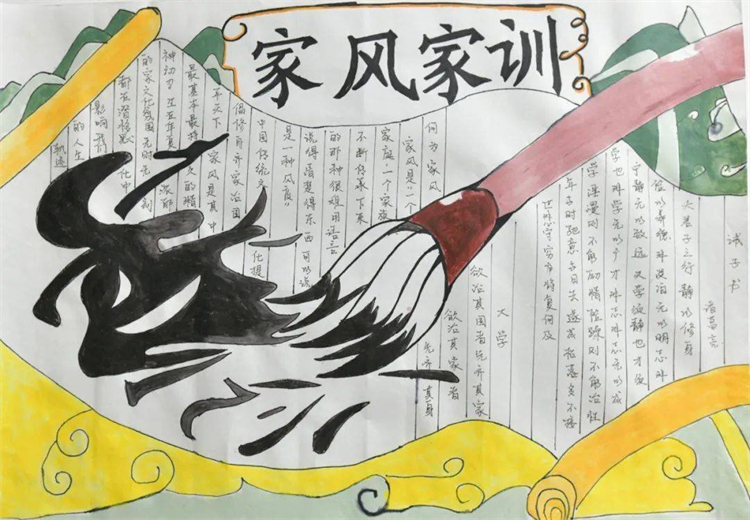 家风家训
诫子书
诸葛亮
夫君子之行静以修身
俭以养德非淡泊无以明志非
宁静无以致远夫学须静也才须
学也非学无以广才非志无以成
学淫漫则不能励精险躁则不能治性
年与时驰意与日去遂成枯落多不接
世悲守穷庐将复何及
大学
欲治其国者先齐其家
欲治其家者
先齐其身
何为家风
家风是“一个
家庭一个家族
不断传承下来
的那种很难用语言
说得清楚得东西可以说
是一种风度”
中国传统文化提
倡修身齐家治国
平天下 家风是其中
最基本最持久的精
神动力
的家文化氛围无时无刻
都在潜移默化中
影响我们
的人生
轨迹